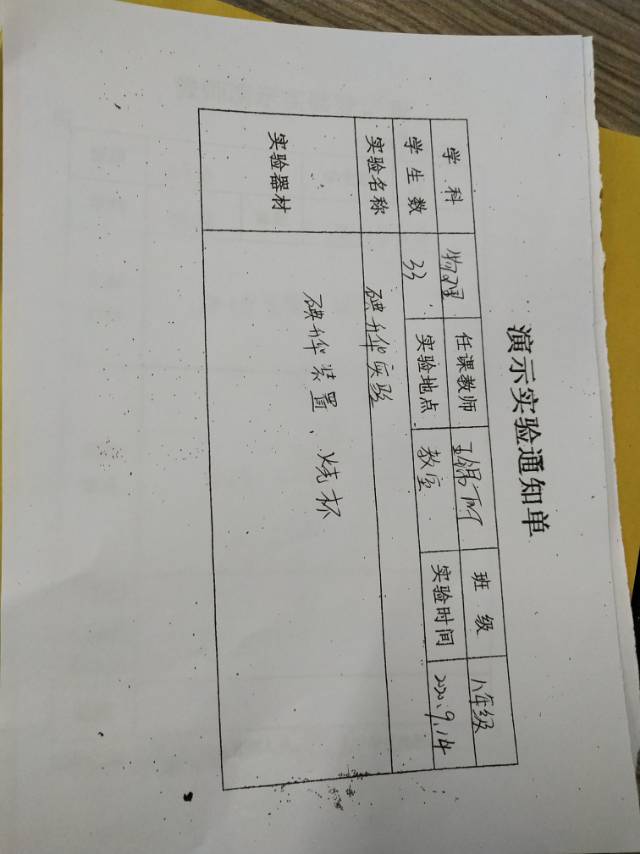 演示实验通知单
学科 物理 任课教师 班级 八年级
学生数 33 实验地点 教室 实验时间 2020.9.14
实验名称 碘升华实验
实验器材 碘升华装置、烧杯